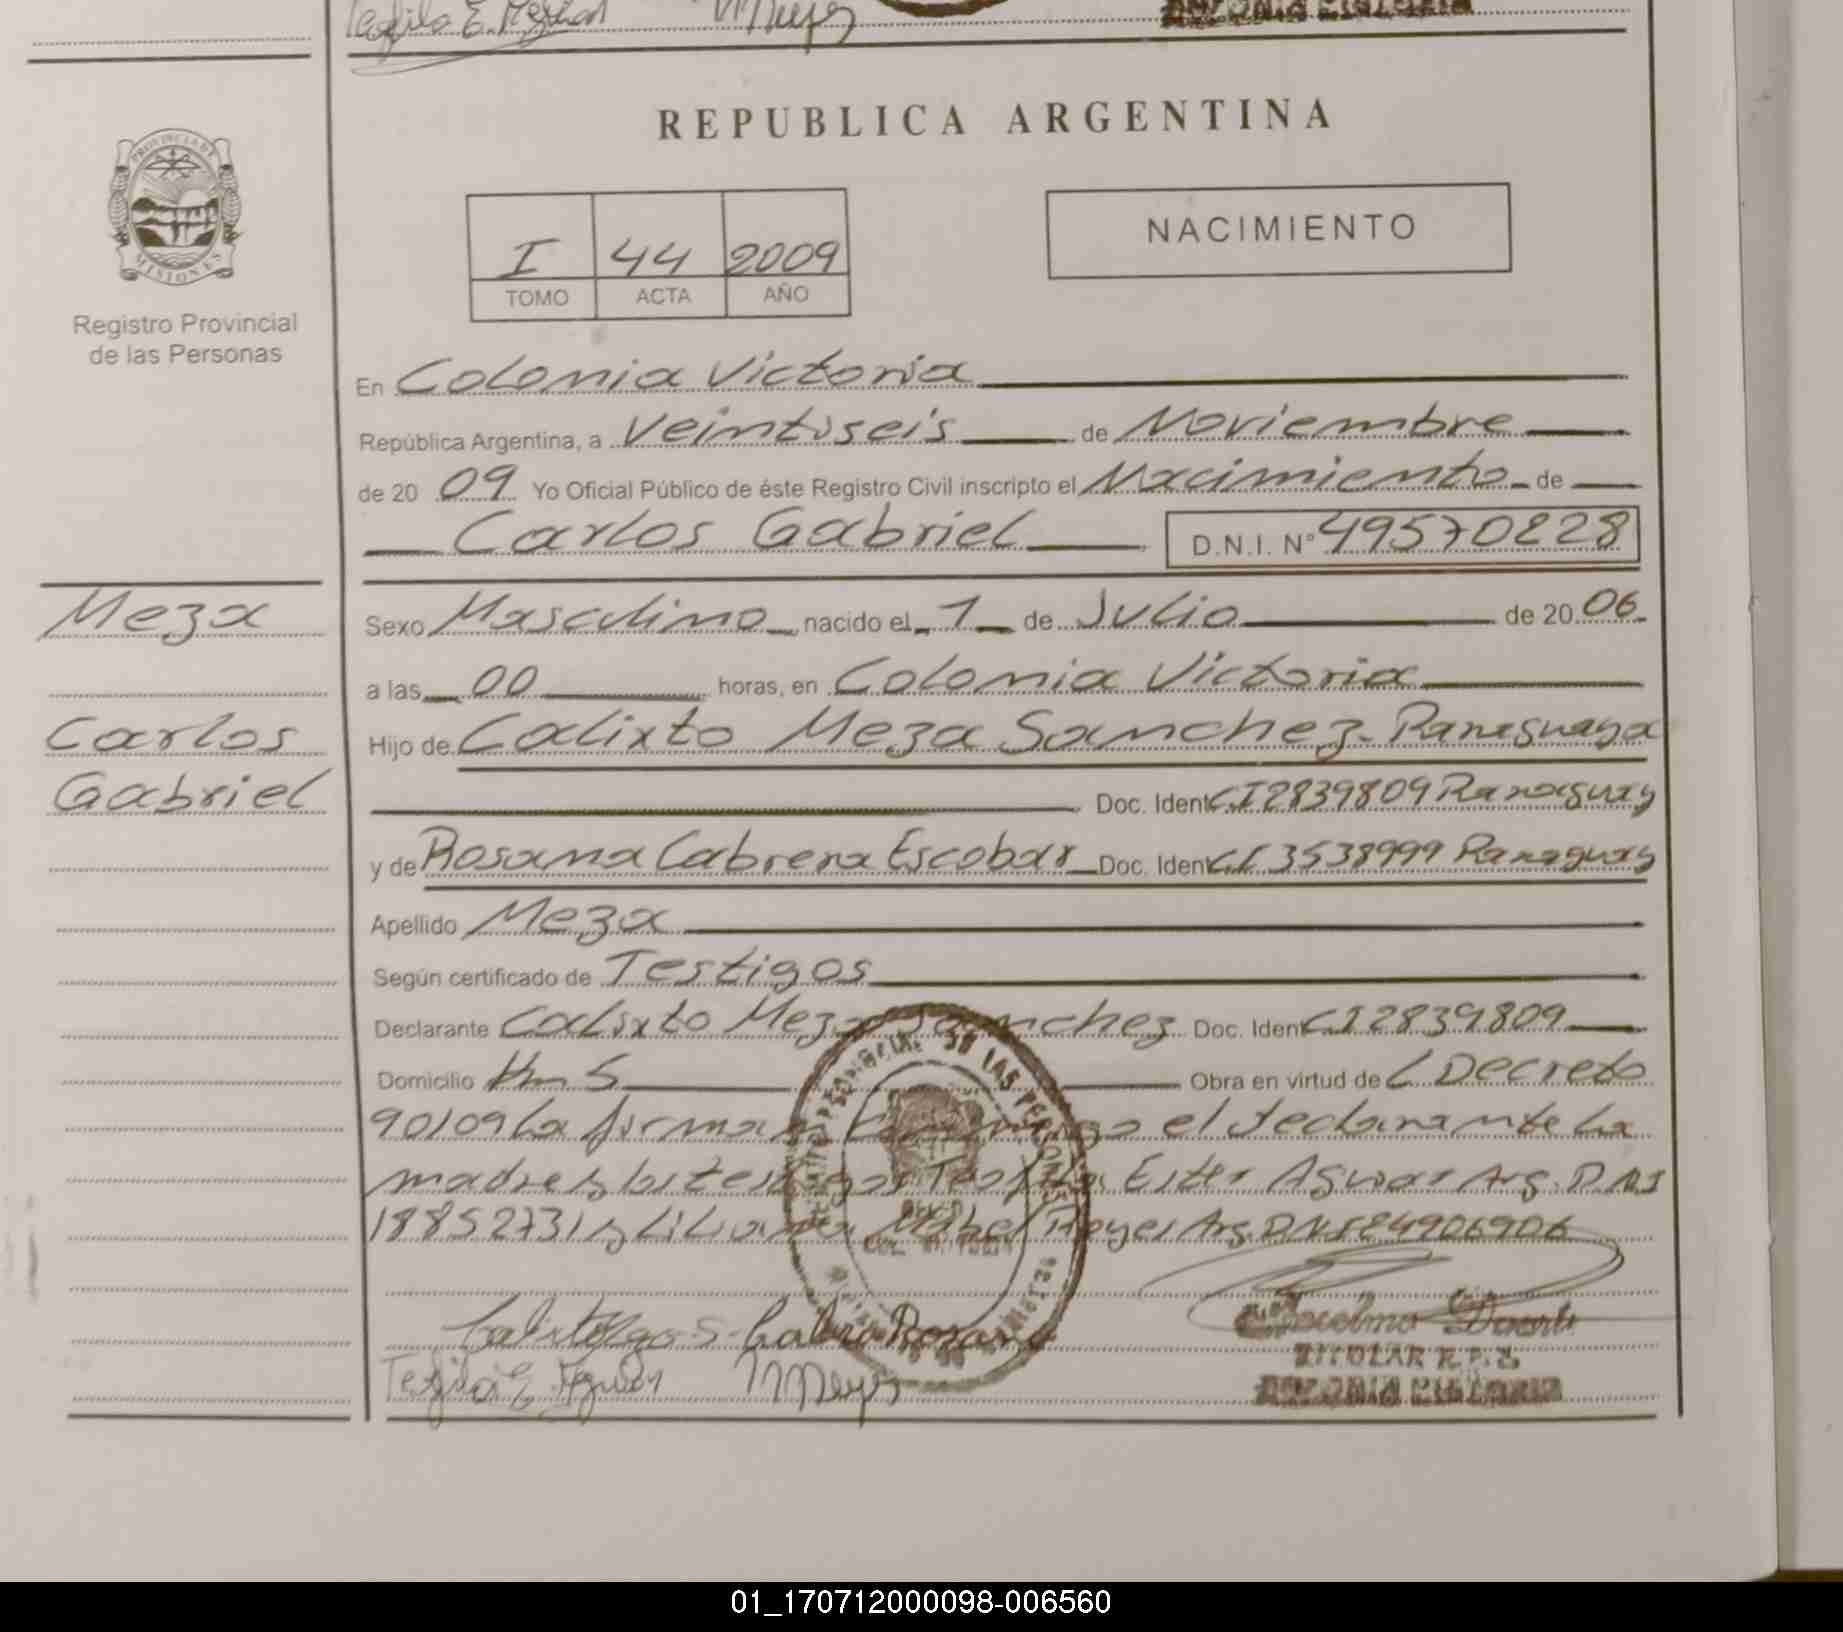 REPUBLICA ARGENTINA
PROVINCIA DE
MISIONES
Registro Provincial
de las Personas
I 44 2009
TOMO ACTA AÑO
NACIMIENTO
En Colonia Victoria
República Argentina, a Veintiseis de Noviembre
de 20 09 Yo Oficial Público de éste Registro Civil inscripto el Nacimiento de
Carlos Gabriel D.N.I. N° 49570228
Meza
Carlos
Gabriel
Sexo Masculino nacido el 1 de Julio de 20 06
a las 00 horas, en Colonia Victoria
Hijo de Calixto Meza Sanchez-Paraguaya
Doc. Ident C.I 2839809 Paraguay
y de Rosana Cabrera Escobar Doc. Ident C.I 3538999 Paraguay
Apellido Meza
Según certificado de Testigos
Declarante Calixto Meza Sanchez Doc. Ident C I 2839809
Domicilio Km 5 Obra en virtud de L Decreto
90/09 La firman el declarante La
madre y los testigos Ester Aguiar Arg. D.N.I
18852731 y Liliana Mabel Meyer Arg. D.N.I 24906906
TITULAR R.P.
01_170712000098-006560